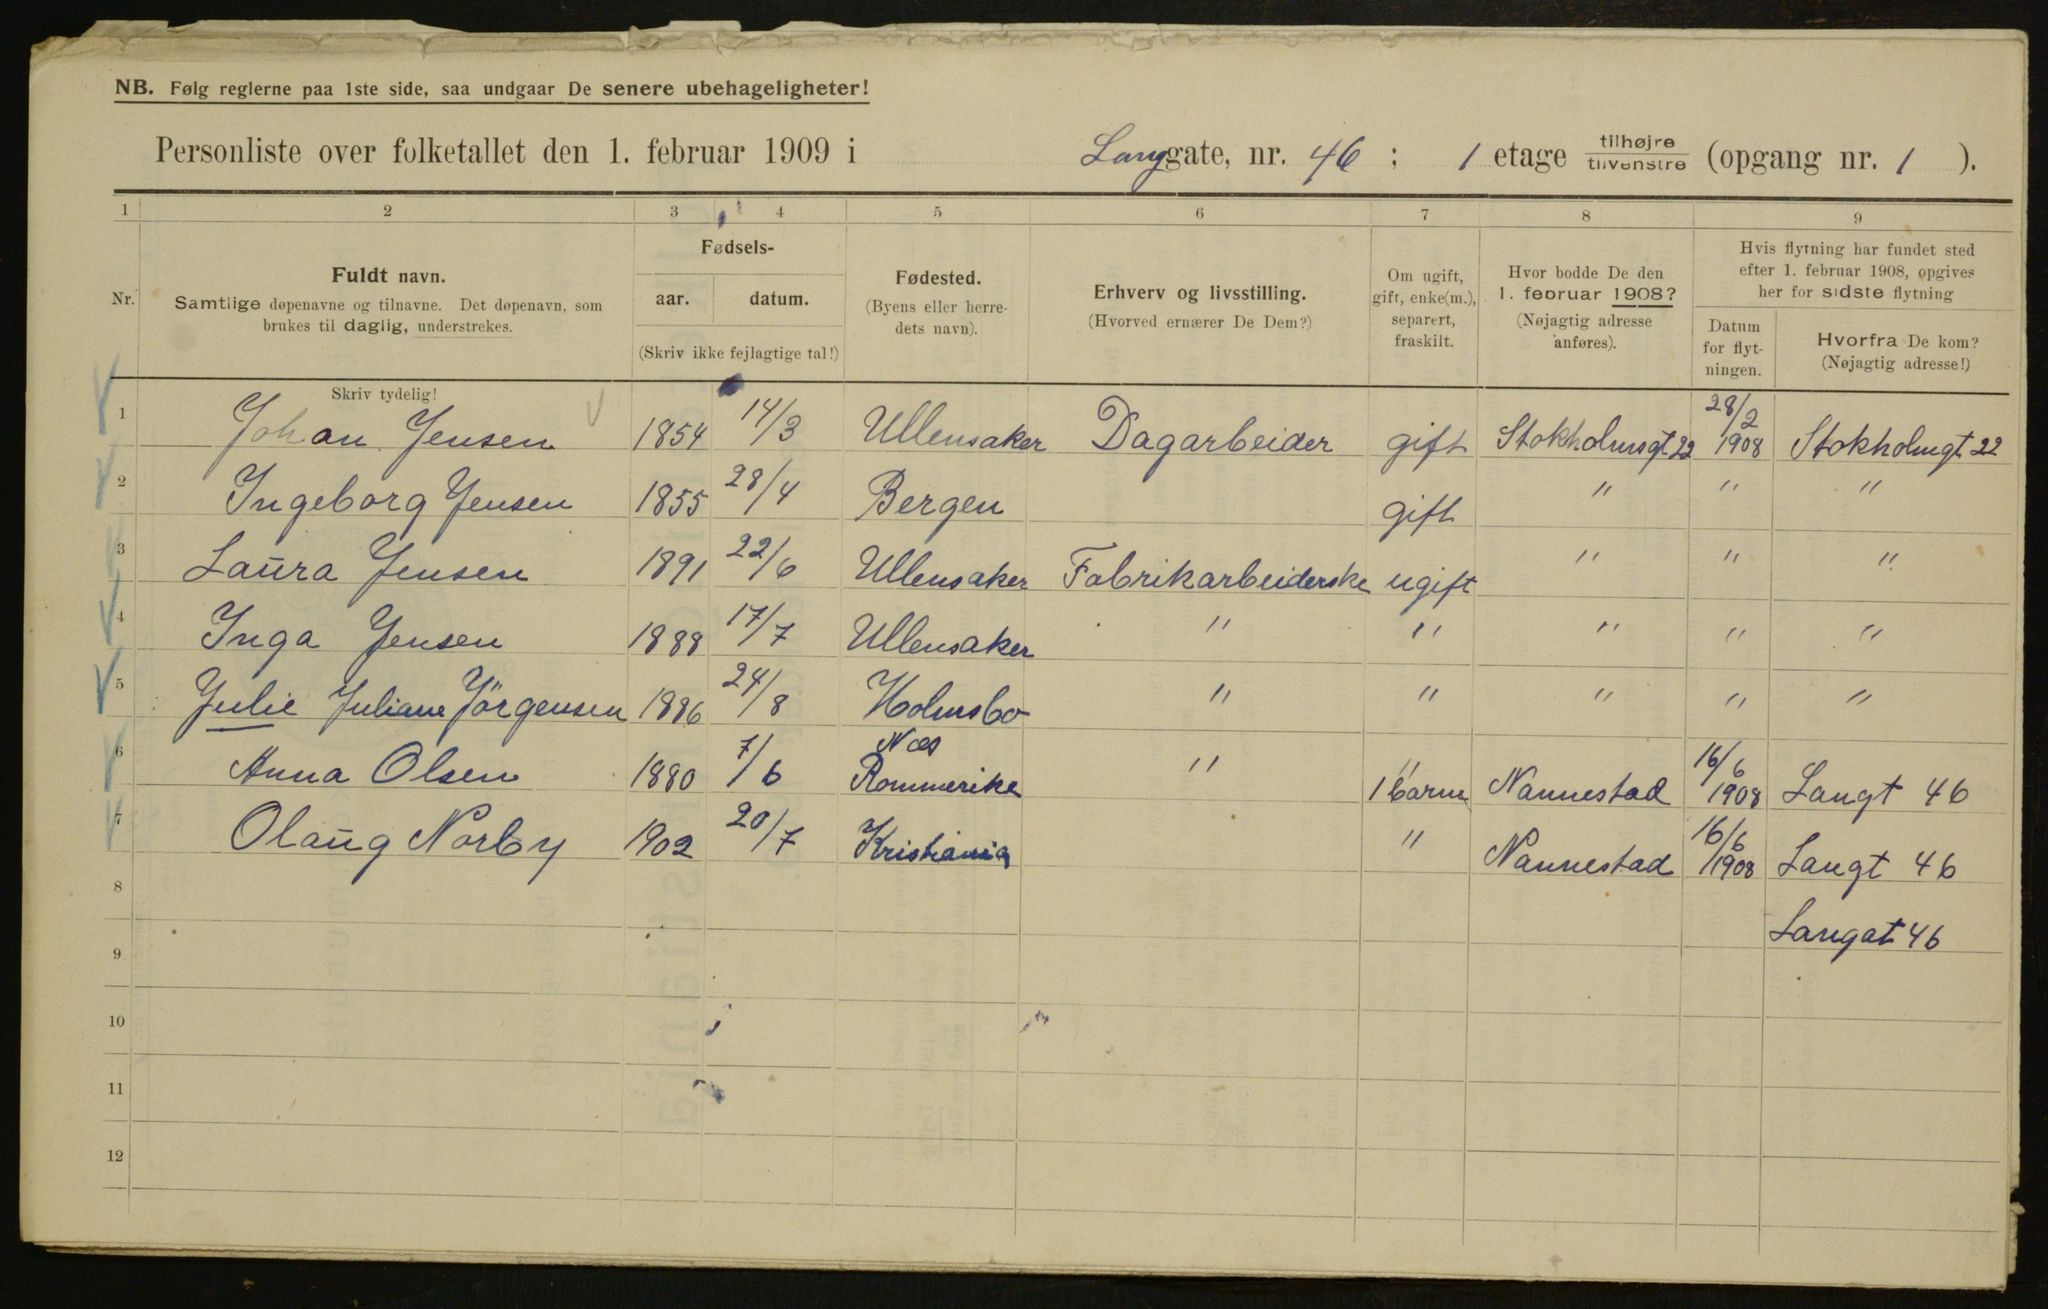 NB. Følg reglerne paa 1ste side, saa undgaar De senere ubehageligheter!
Personliste over folketallet den 1. februar 1909 i Langgate, nr. 46 ; 1 etage tilhøjre tilvenstre (opgang nr. 1 ).
1 2 3 4 5 6 7 8 9
Nr.
Fuldt navn.
Samtlige døpenavne og tilnavne. Det døpenavn, som
brukes til daglig, understrekes.
Fødsels-
aar. datum.
(Skriv ikke fejlagtige tal!)
Fødested.
(Byens eller herre-
dets navn).
Erhverv og livsstilling.
(Hvorved ernærer De Dem?)
Om ugift,
gift, enke(m.),
separert,
fraskilt.
Hvor bodde De den
1. februar 1908?
(Nøjagtig adresse
anføres).
Hvis flytning har fundet sted
efter 1. februar 1908, opgives
her for sidste flytning
Datum
for flyt-
ningen.
Hvorfra De kom?
(Nøjagtig adresse!)
Skriv tydelig!
1 Johan Jensen 1854 14/3 Ullensaker Dagarbeider gift Stokholmsgt 22 28/2 1908 Stokholmgt 22
2 Ingeborg Jensen 1855 28/4 Bergen gift " " "
3 Laura Jensen 1891 22/6 Ullensaker Fabrikarbeiderske ugift " " "
4 Inga Jensen 1888 17/7 Ullensaker " " " " "
5 Julie Juliane Jörgensen 1886 24/8 Holmsbo " " " " "
6 Anna Olsen 1880 7/6 Næs Rommerike " " 1 barn Nannestad 16/6 1908 Langt 46
7 Olaug Norby 1902 20/7 Kristiania " Nannestad 16/6 1908 Langt 46
8 Langat 46
9
10
11
12